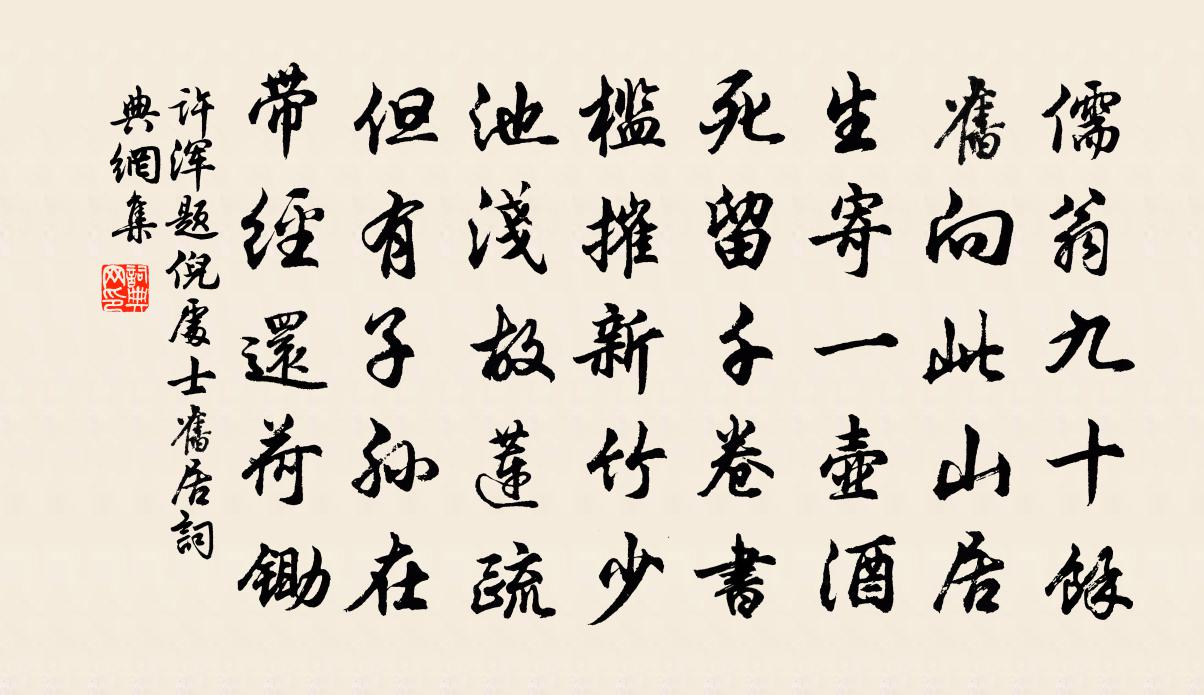 儒翁九十餘
舊向此山居
生寄一壺酒
死留千卷書
檻摧新竹少
池淺故蓮疏
但有子孫在
带經還荷鋤
许渾題倪處士舊居詞
典網集
詞典
网印